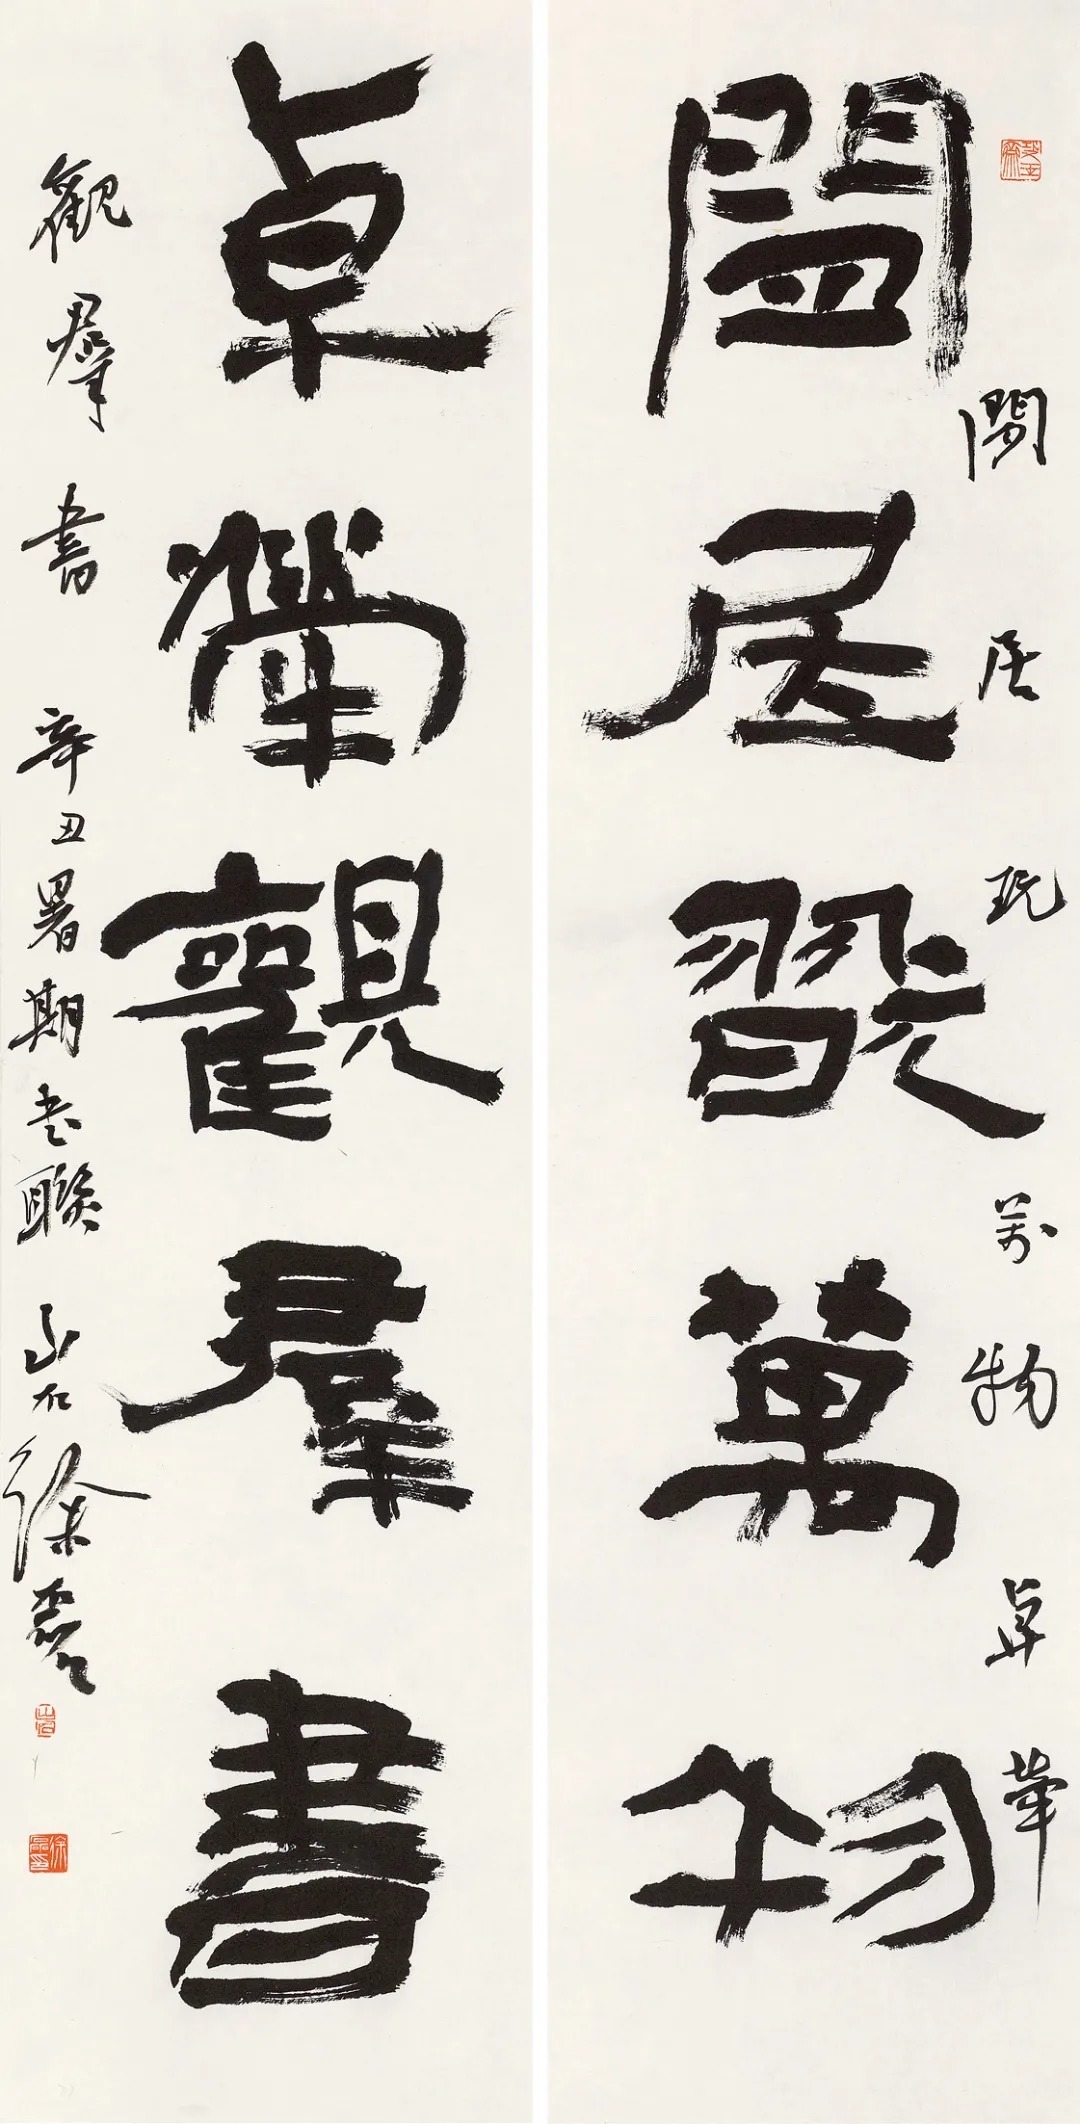 閒居翫萬物
卓犖觀羣書
閒居玩萬物卓荦
觀羣書 辛丑暑期书聯 山石徐